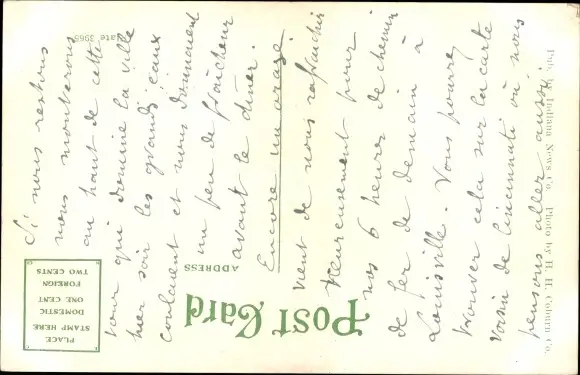 Si nous restons
nous monterons
au haut de cette
tour qui domine la ville
hier soir les grands eaux
coulaient et nous donnaient
un peu de fraîcheur
avant le dîner.
Encore un orage
vient de nous rafraîchir
heureusement pour
nos 6 heures de chemin
de fer de demain à
Louisville. Vous pourrez
trouver cela sur la carte
voisin de Cincinnati où nous
pensons aller aussi.
POST CARD
ADDRESS
PLACE
STAMP HERE
DOMESTIC
ONE CENT
FOREIGN
TWO CENTS
Pub. by Indiana News Co. Photo by H. H. Coburn Co.